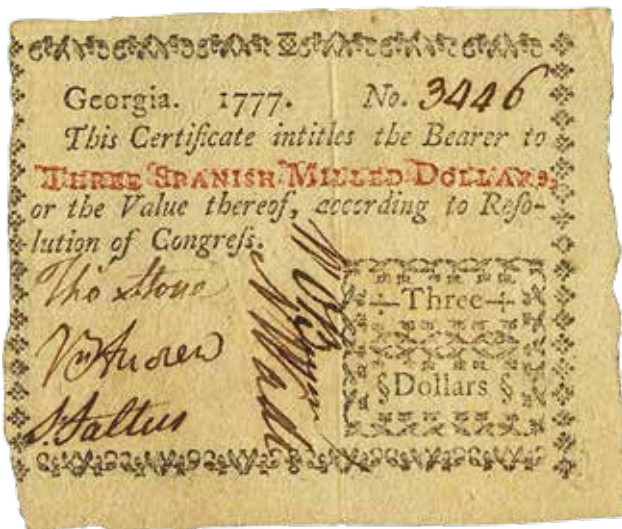 Georgia. 1777. No. 3446
This Certificate intitles the Bearer to
THREE SPANISH MILLED DOLLARS,
or the Value thereof, according to Reſo-
lution of Congreſs.
Tho Stone
Three
Dollars